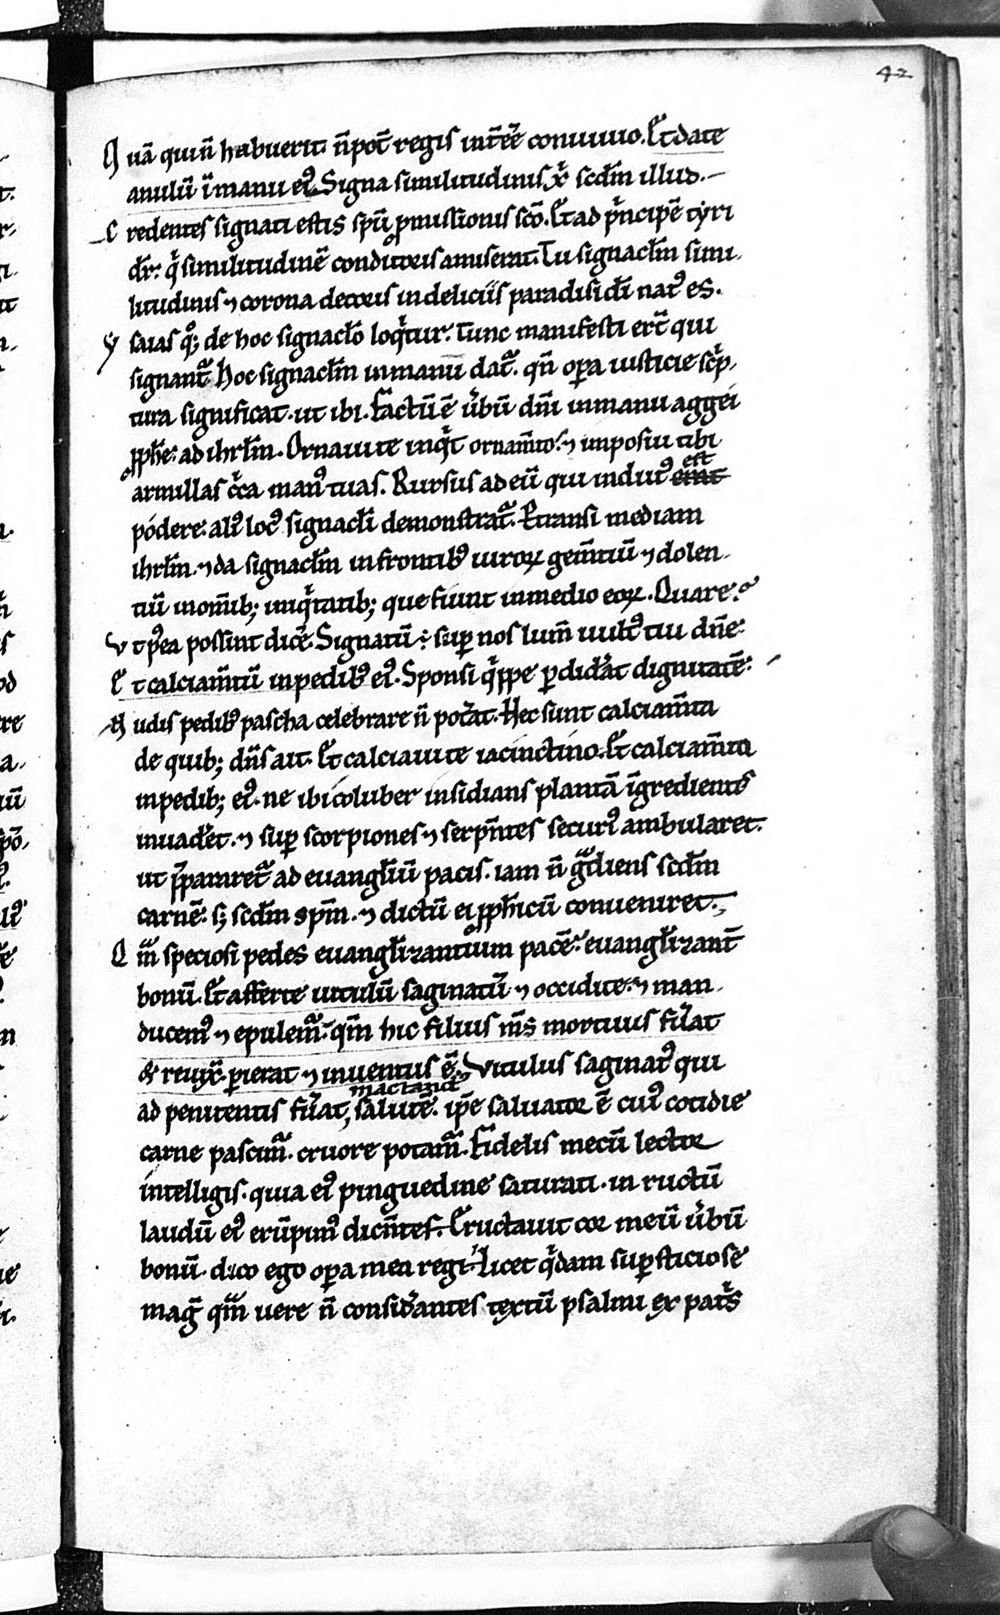 42
Quā qui ñ habuerit. ñ pot̄ regis int̄eē conuiuio. Et date
anulū ī manu ei᷒. Signa similitudinis xp̄i scd̄m illud.
Credentes signati estis spū ꝓmissionis scō. Et ad pͥncipē tyri
dr̄. qͥ similitudinē conditoris amiserat. Tu signacl̄m simi-
litudinis ⁊ corona decoris in deliciis paradisi dī nat᷒ es.
Ysaias qͦꝫ de hoc signacl̄o loqͥtur. Tunc manifesti ert̄ qui
signant᷑. Hoc signacl̄m in manu dat᷑. qn̄ oꝑa iusticie scͥp-
tura significat. ut ibi. Factū ē ūbū dn̄i in manu aggei
ꝓph̄e. ad ihrl̄m. Ornaui te inqͥt ornam̄to. ⁊ imposui tibi
armillas cͥca man᷒ tuas. Rursus ad eū qui indut᷒ erat est
podere. ali᷒ loc᷒ signacl̄i demonstrat᷑. Et transi mediam
ihrl̄m. ⁊ da signacl̄m in frontib᷒ uiroꝝ gem̄tiū ⁊ dolen-
tiū in om̄ibꝫ iniqͥtatibꝫ que fiunt in medio eoꝝ. Quare?
Vt p᷒ea possint dic̄e. Signatū ÷ suꝑ nos lum̄ uult᷒ tui dn̄e.
Et calciam̄tū in pedib᷒ ei᷒. Sponsi qͥppe ꝑdiderat dignitatē.
Nudis pedib᷒ pascha celebrare ñ pot̄at. Hec sunt calciam̄ta
de quibꝫ dn̄s ait. Et calciaui te iacinctino. Et calciam̄ta
in pedibꝫ ei᷒. ne ibi coluber insidians plantā īgredientis
inuaderet. ⁊ suꝑ scorpiones ⁊ serpn̄tes secur᷒ ambularet.
ut p̄pararet᷑ ad euangl̄iū pacis. iam ñ gᷓdiens scd̄m
carnē. sꝫ scd̄m spm̄. ⁊ dictū ei ꝓph̄icū conueniret.
Qᷓm speciosi pedes euangl̄izantium pacē. euangl̄izant̄
bonū. Et afferte uitulū saginatū ⁊ occidite. ⁊ man-
ducem᷒ ⁊ epulem᷑. qm̄ hic filius m̄s mortuus fūat
& reuix̄. ꝑierat ⁊ inuentus ē. Vitulus saginat᷒ qui
ad penitentis fūat, mactand᷒ salutē. ip̄e saluator ē cui᷒ cotidie
carne pascim᷑. cruore potam᷑. Fidelis mecū lector
intelligis. quia ei᷒ pinguedine saturati. in ructū
laudū ei᷒ erūpim᷒ dicn̄tes. Eructauit cor meū ūbū
bonū. dico ego oꝑa mea regi. Licet qͥdam suꝑsticiose
mag̃ qᷓm uere ñ consid̄antes textū psalmi ex patͥs